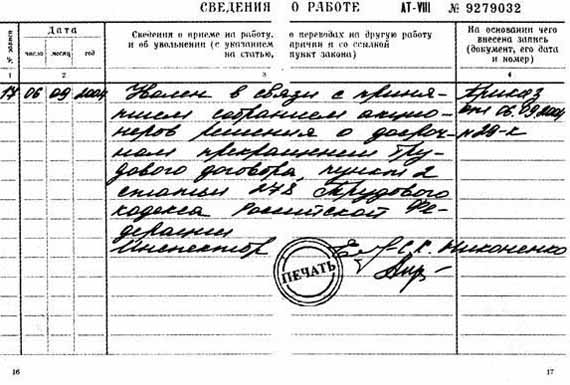 СВЕДЕНИЯ О РАБОТЕ АТ-VIII № 9279032
№ записи
Дата
число месяц год
Сведения о приеме на работу, о переводах на другую работу
и об увольнении (с указанием причин и со ссылкой
на статью, пункт закона)
На основании чего
внесена запись
(документ, его дата
и номер)
1 2 3 4
17 06 09 2004 Уволен в связи с приня- Приказ
тием собранием акцио- от 06.09.2004
неров решения о досроч- № 29-к
ном прекращении тру-
дового договора, пункт 2
статьи 278 Трудового
кодекса Российской Фе-
дерации
Инспектор С.К. Никоненко
ПЕЧАТЬ
16 17